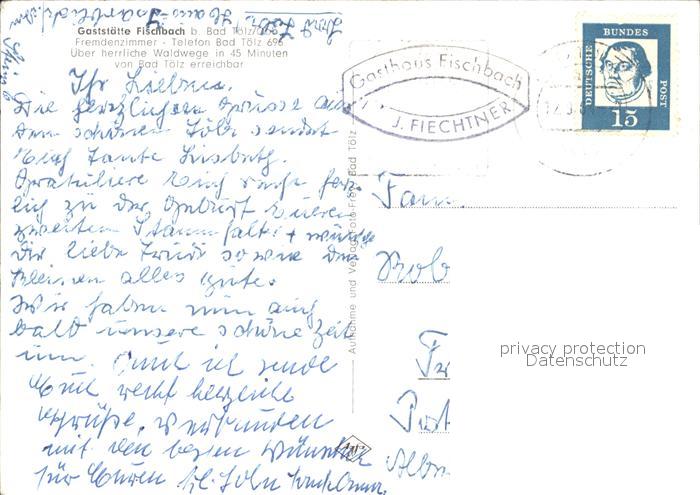 Gaststätte Fischbach b. Bad Tölz/Obb.
Fremdenzimmer - Telefon Bad Tölz 696
Über herrliche Waldwege in 45 Minuten
von Bad Tölz erreichbar
Ihr Lieben.
Die herzlichsten Grüsse aus
dem schönen Tölz sendet
Euch Tante Lisbeth.
Gratuliere Euch recht herz-
lich zu der Geburt Eures
zweiten Stammhalters + wünsche
Dir liebe Trudi sowie dem
Kleinen alles gute.
Wir haben nun auch
bald unsere schöne Zeit
um. Auch ich sende
Euch recht herzliche
Grüße, verbunden
mit den besten Wünschen
für Euren kl. Sohn
Aufnahme und Verlag Foto-Frei, Bad Tölz
Gasthaus Fischbach
J. FIECHTNER
DEUTSCHE
BUNDES
POST
15
Fam.
Rob
Post
privacy protection
Datenschutz